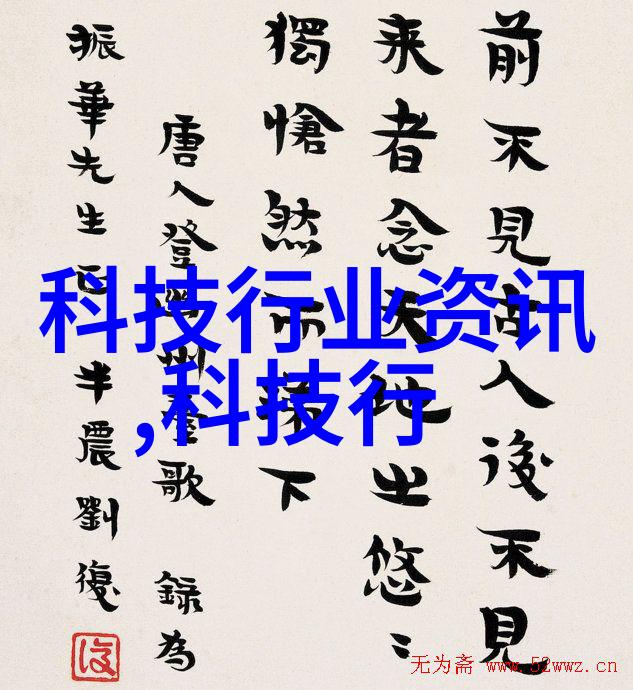 前不見古人後不見
来者念天地之悠〻
獨愴然而涕下
唐人登幽州臺歌 錄為
振華先生正 半農劉復
復
科技行业资讯
,科技行
无为斋 www.52wwz.cn